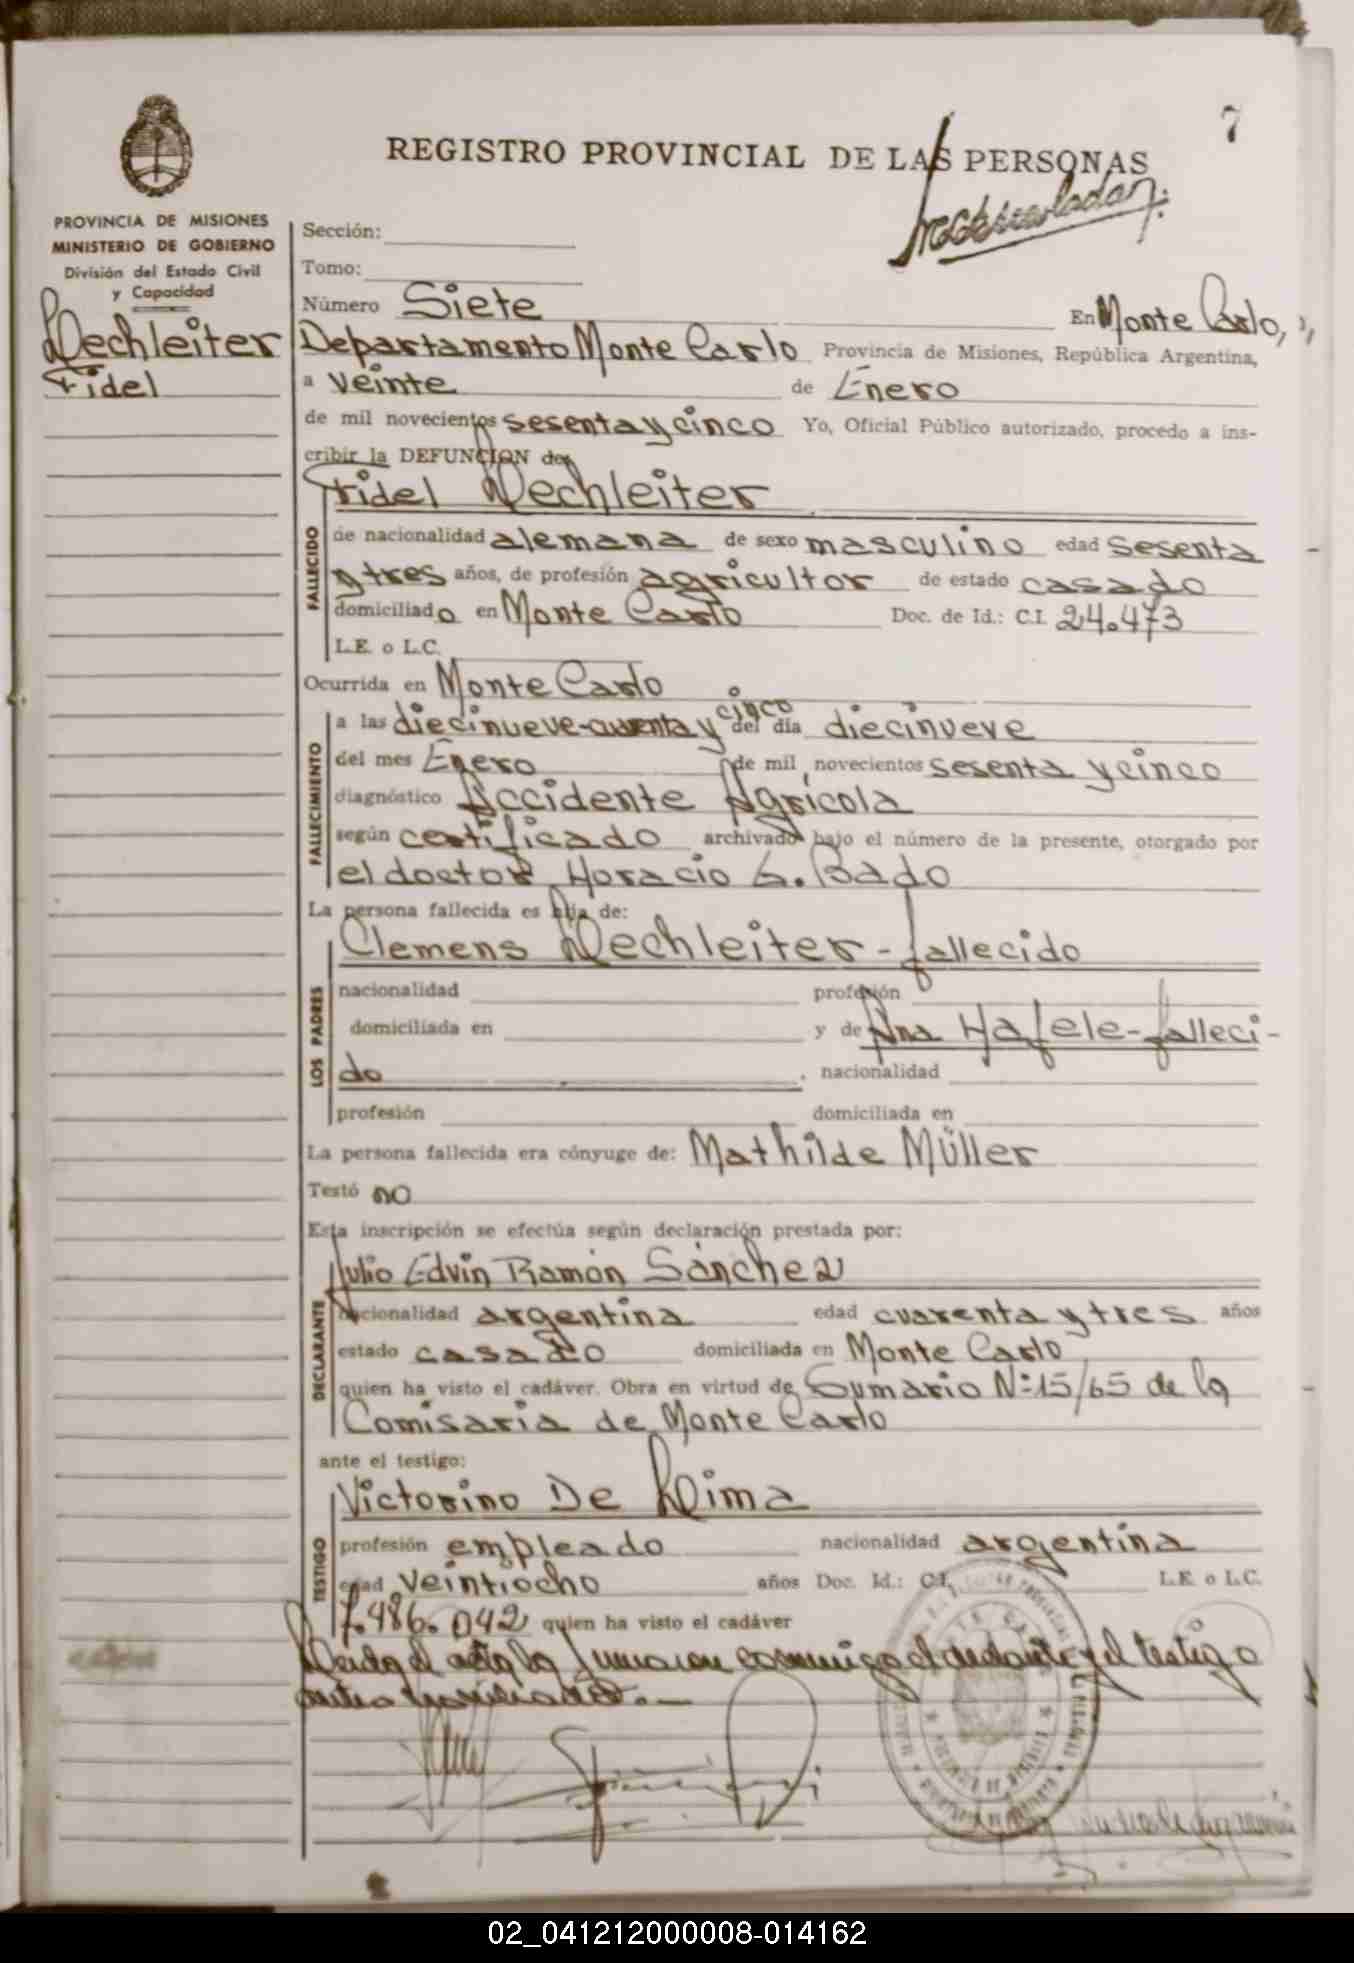 7
REGISTRO PROVINCIAL DE LAS PERSONAS
PROVINCIA DE MISIONES
MINISTERIO DE GOBIERNO
División del Estado Civil
y Capacidad
Dechleiter
Fidel
Sección:
Tomo:
Número Siete En Monte Carlo,
Departamento Monte Carlo Provincia de Misiones, República Argentina,
a veinte de Enero
de mil novecientos sesenta y cinco Yo, Oficial Público autorizado, procedo a ins-
cribir la DEFUNCION de
Fidel Dechleiter
FALLECIDO
de nacionalidad alemana de sexo masculino edad sesenta
y tres años, de profesión agricultor de estado casado
domiciliado en Monte Carlo Doc. de Id.: C.I. 24.473
L.E. o L.C.
Ocurrida en Monte Carlo
FALLECIMIENTO
a las diecinueve-cuarenta y cinco del día diecinueve
del mes Enero de mil novecientos sesenta y cinco
diagnóstico Accidente Agrícola
según certificado archivado bajo el número de la presente, otorgado por
el doctor Horacio G. Bado
La persona fallecida es hija de:
LOS PADRES
Clemens Dechleiter - fallecido
nacionalidad profesión
domiciliada en y de Ana Hafele - falleci-
do , nacionalidad
profesión domiciliada en
La persona fallecida era cónyuge de: Mathilde Müller
Testó no
Esta inscripción se efectúa según declaración prestada por:
DECLARANTE
Julio Edvin Ramón Sánchez
nacionalidad argentina edad cuarenta y tres años
estado casado domiciliada en Monte Carlo
quien ha visto el cadáver. Obra en virtud de Sumario Nº 15/65 de la
Comisaria de Monte Carlo
ante el testigo:
TESTIGO
Victorino De Lima
profesión empleado nacionalidad argentina
edad veintiocho años Doc. Id.: C.I. L.E. o L.C.
7.486.042 quien ha visto el cadáver
Leida el acta la firmaron conmigo el declarante y el testigo
02_041212000008-014162